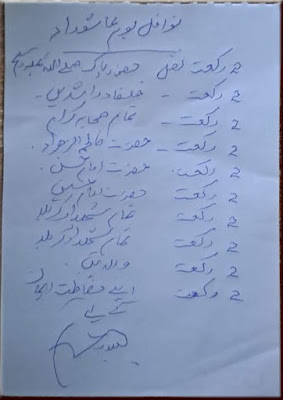 نوافل یوم عاشوراء
2 رکعت نفل حضور پاک صلی اللہ علیہ وسلم
2 رکعت - خلفاء راشدین -
2 رکعت - تمام صحابہ کرام
2 رکعت - حضرت فاطمۃ الزھراء
2 رکعت . حضرت امام حسن .
2 رکعت حضرت امام حسین
2 رکعت تمام شھداء کربلا
2 رکعت تمام شھداء کربلا
2 رکعت والدین .
2 رکعت اپنے حفاظت ایمان
کے لیے